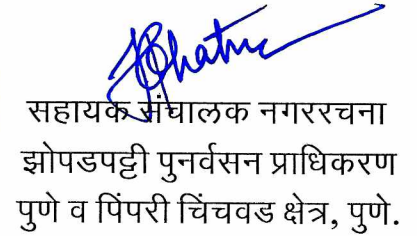 सहायक संचालक नगररचना
झोपडपट्टी पुनर्वसन प्राधिकरण
पुणे व पिंपरी चिंचवड क्षेत्र, पुणे.